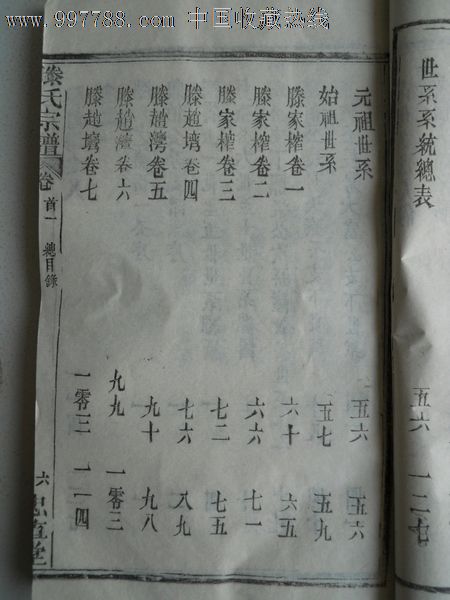 www.997788.com 中国收藏热线
世系系統總表 五六 一二七
元祖世系 五六 五六
始祖世系 五七 五九
滕家榨卷一 六十 六五
滕家榨卷二 六六 七一
滕家榨卷三 七二 七五
滕趙塆卷四 七六 八九
滕趙灣卷五 九十 九八
滕趙灣卷六 九九 一零三
滕趙塆卷七 一零三 一一四
滕氏宗譜 卷首一 總目錄 六 忠直堂